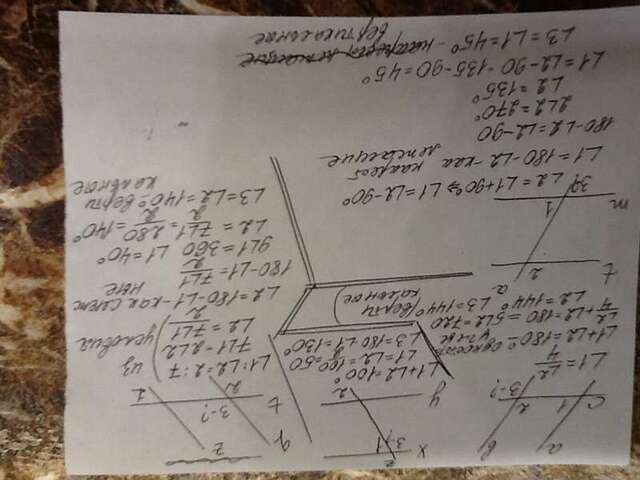 a b
c 1 2
3-?
∠1 = ∠2/4
∠1+∠2=180° односторонние
∠2/4+∠2=180 = 5∠2=720
∠2=144° ∠3=144° (вертикальные)
x
3 1
y
2
∠1+∠2=100°
∠1=∠2=100/2=50
∠3=180-∠1=130°
q z
3-?
t
2 1
∠1:∠2=2:7
7∠1=2∠2
∠2=7∠1/2
из условия
∠2=180-∠1-как смежные
180-∠1=7∠1/2
9∠1=360 ∠1=40°
∠2=7∠1/2=280/2=140°
∠3=∠2=140°- вертикальные
a
t 2
m 1
3?
∠2=∠1+90°⇒ ∠1=∠2-90°
∠1=180-∠2-как накрест лежащие
180-∠2=∠2-90
2∠2=270°
∠2=135°
∠1=∠2-90=135-90=45°
∠3=∠1=45°- накрест лежащие
вертикальные